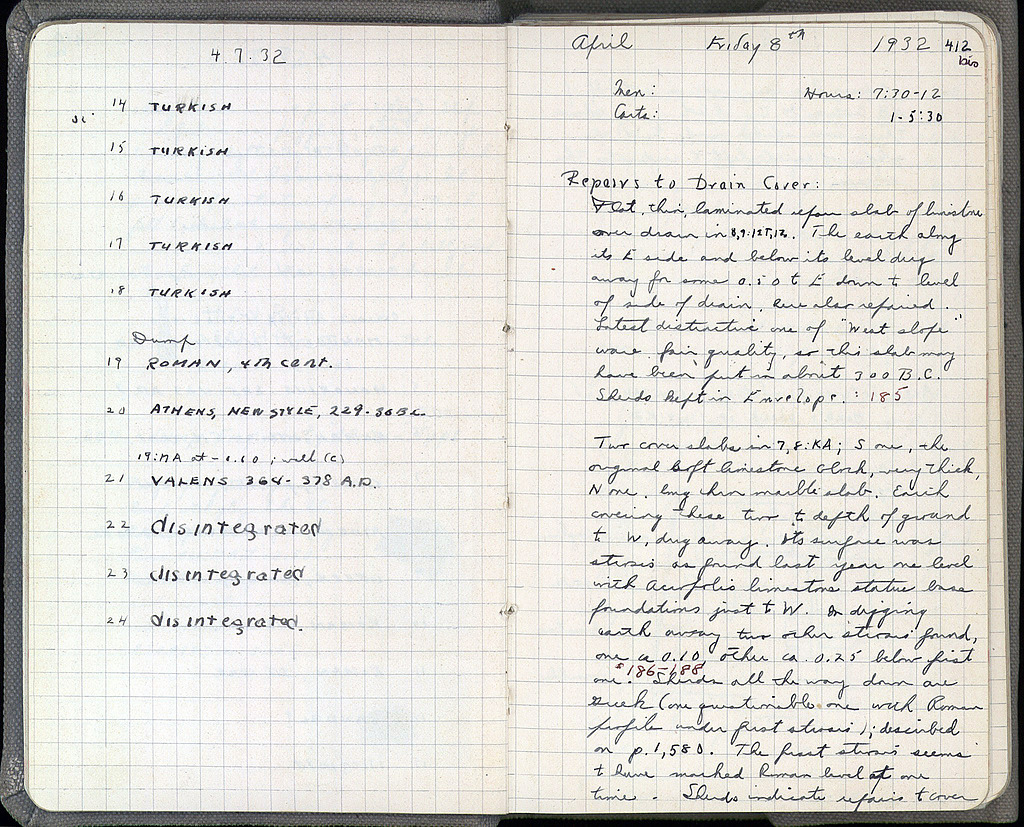 4.7.32
14 TURKISH
15 TURKISH
16 TURKISH
17 TURKISH
18 TURKISH
Dump
19 ROMAN, 4th cent.
20 ATHENS, NEW STYLE, 229-30 B.C.
19:MA at -1.10; well (c)
21 VALENS 364-378 A.D.
22 disintegrated
23 disintegrated
24 disintegrated.
April Friday 8th 1932 412
bis
Men: Hours: 7:30-12
Carts: 1-5:30
Repairs to Drain Cover:
Flat, thin, laminated repair slab of limestone
over drain in 8,9:12. The earth along
its E side and below its level dug
away for some 0.50 to E down to level
of side of drain, here also repaired.
Latest distinctive one of "West slope"
ware, fair quality, so this slab may
have been put in about 300 B.C.
Sherds kept in Envelope.: 185
Two cover slabs in 7,8:KA; S one, the
original soft limestone block, very thick,
N one, long thin marble slab. Earth
covering these two to depth of ground
to W, dug away. Its surface was
strosis as found last year on level
with Acropolis limestone statue base
foundations just to W. In digging
earth away two other strosis found,
one ca 0.10 other ca. 0.25 below first
one. 186-188 Sherds all the way down are
Greek (one questionable one with Roman
profile under first strosis); described
on p. 1,580. The first strosis seems
to have marked Roman level at one
time. Sherds indicate repairs to cover